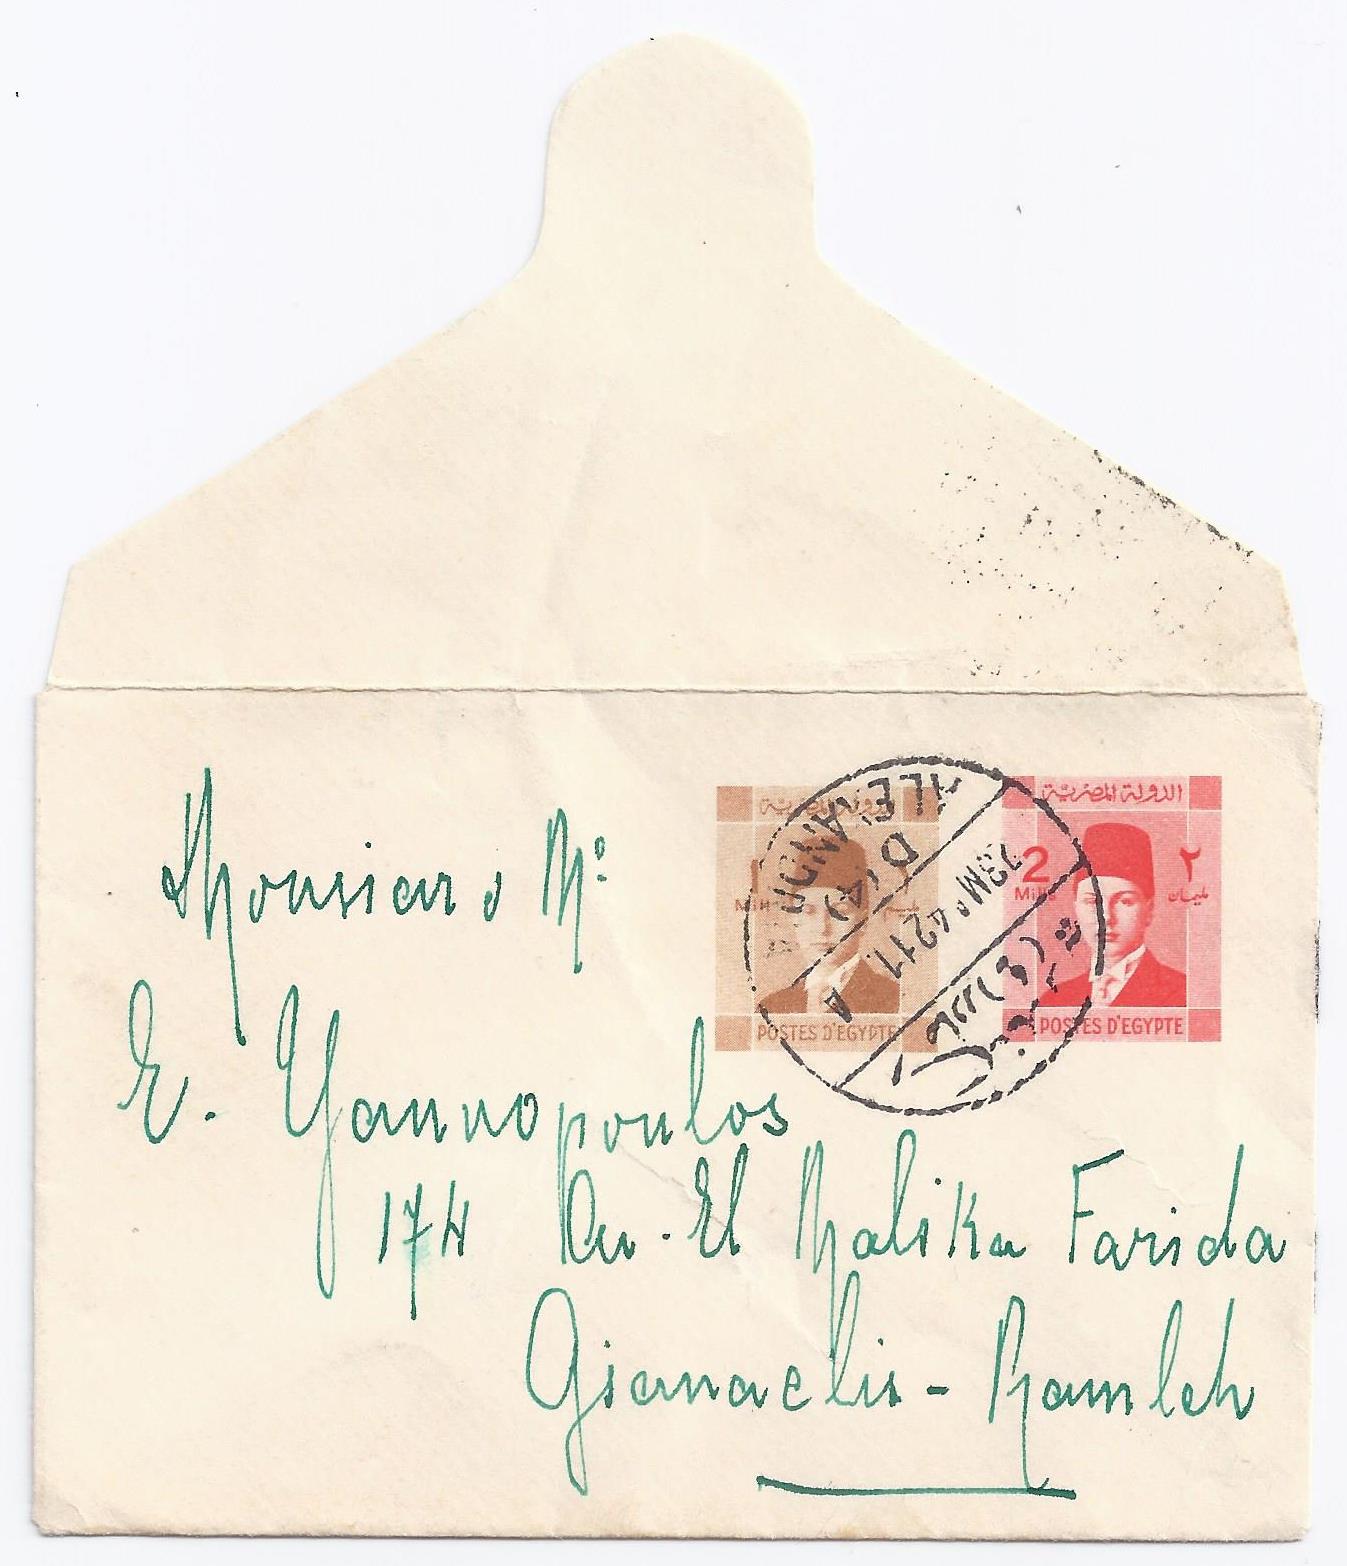 الدولة المصرية
مليم
Mill
POSTES D'EGYPTE
الدولة المصرية
2 ٢
Mills مليمان
POSTES D'EGYPTE
ALEXANDRIA
D (4)
23 MR 42 11. A
Monsieur Mr
E. Yannopoulos
174 Av. El Malika Farida
Gianaclis - Ramleh